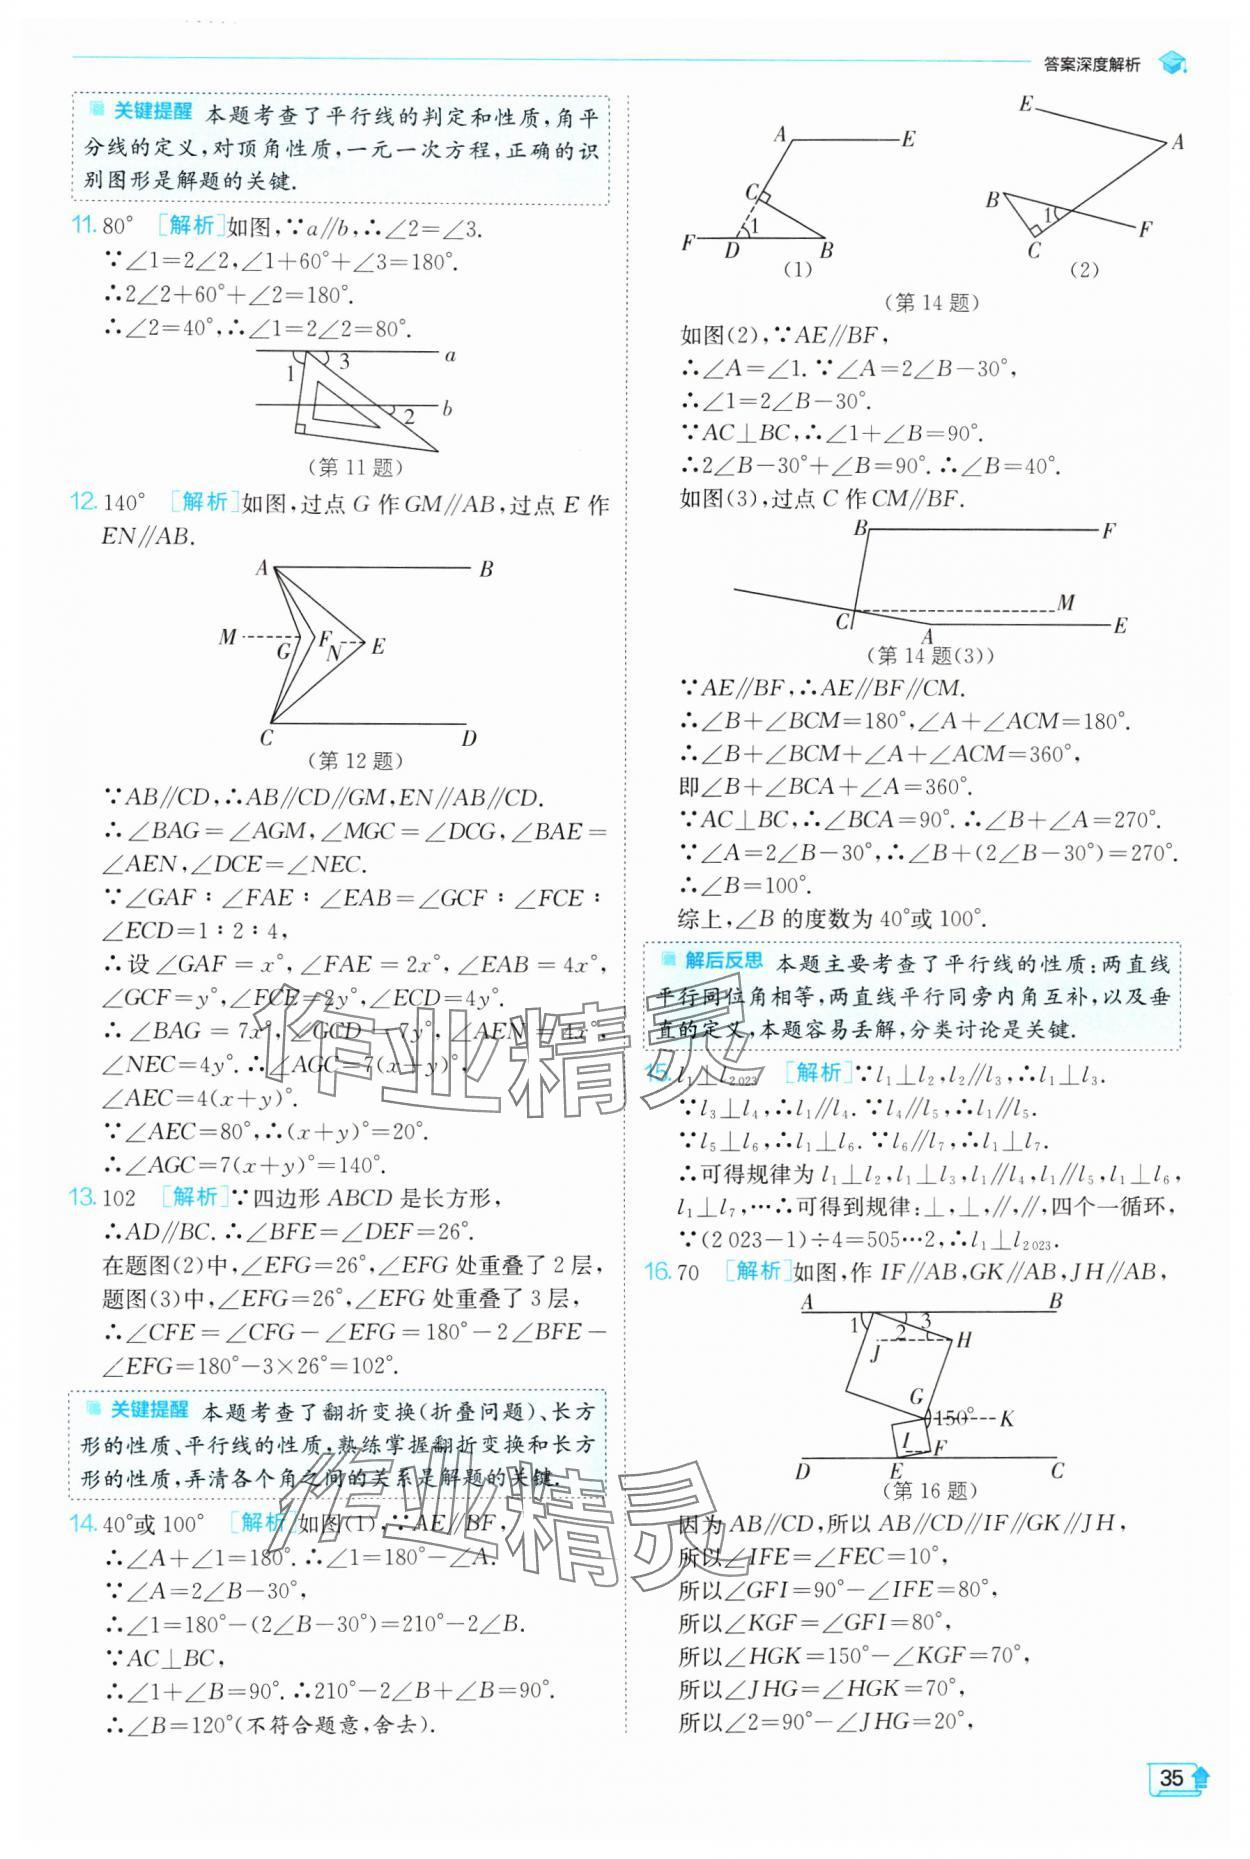 答案深度解析
关键提醒 本题考查了平行线的判定和性质,角平
分线的定义,对顶角性质,一元一次方程,正确的识
别图形是解题的关键.
11. 80° [解析]如图,∵a//b,∴∠2=∠3.
∵∠1=2∠2,∠1+60°+∠3=180°.
∴2∠2+60°+∠2=180°.
∴∠2=40°,∴∠1=2∠2=80°.
1 3 a
2 b
(第 11 题)
12. 140° [解析]如图,过点 G 作 GM//AB,过点 E 作
EN//AB.
A B
M G F N E
C D
(第 12 题)
∵AB//CD,∴AB//CD//GM,EN//AB//CD.
∴∠BAG=∠AGM,∠MGC=∠DCG,∠BAE=
∠AEN,∠DCE=∠NEC.
∵∠GAF∶∠FAE∶∠EAB=∠GCF∶∠FCE∶
∠ECD=1∶2∶4,
∴设∠GAF=x°,∠FAE=2x°,∠EAB=4x°,
∠GCF=y°,∠FCE=2y°,∠ECD=4y°.
∴∠BAG=7x°,∠GCD=7y°,∠AEN=4x°,
∠NEC=4y°.∴∠AGC=7(x+y)°,
∠AEC=4(x+y)°.
∵∠AEC=80°,∴(x+y)°=20°.
∴∠AGC=7(x+y)°=140°.
13. 102 [解析]∵四边形 ABCD 是长方形,
∴AD//BC.∴∠BFE=∠DEF=26°.
在题图(2)中,∠EFG=26°,∠EFG 处重叠了 2 层,
题图(3)中,∠EFG=26°,∠EFG 处重叠了 3 层,
∴∠CFE=∠CFG-∠EFG=180°-2∠BFE-
∠EFG=180°-3×26°=102°.
关键提醒 本题考查了翻折变换(折叠问题)、长方
形的性质、平行线的性质,熟练掌握翻折变换和长方
形的性质,弄清各个角之间的关系是解题的关键.
14. 40°或 100° [解析]如图(1),∵AE//BF,
∴∠A+∠1=180°.∴∠1=180°-∠A.
∵∠A=2∠B-30°,
∴∠1=180°-(2∠B-30°)=210°-2∠B.
∵AC⊥BC,
∴∠1+∠B=90°.∴210°-2∠B+∠B=90°.
∴∠B=120°(不符合题意,舍去).
A E
C
F D 1 B
(1)
E A
B 1 F
C
(2)
(第 14 题)
如图(2),∵AE//BF,
∴∠A=∠1.∵∠A=2∠B-30°,
∴∠1=2∠B-30°.
∵AC⊥BC,∴∠1+∠B=90°.
∴2∠B-30°+∠B=90°.∴∠B=40°.
如图(3),过点 C 作 CM//BF.
B F
C M
A E
(第 14 题(3))
∵AE//BF,∴AE//BF//CM.
∴∠B+∠BCM=180°,∠A+∠ACM=180°.
∴∠B+∠BCM+∠A+∠ACM=360°,
即∠B+∠BCA+∠A=360°.
∵AC⊥BC,∴∠BCA=90°.∴∠B+∠A=270°.
∵∠A=2∠B-30°,∴∠B+(2∠B-30°)=270°.
∴∠B=100°.
综上,∠B 的度数为 40°或 100°.
解后反思 本题主要考查了平行线的性质:两直线
平行同位角相等,两直线平行同旁内角互补,以及垂
直的定义,本题容易丢解,分类讨论是关键.
15. l₁⊥l₂₀₂₃ [解析]∵l₁⊥l₂,l₂//l₃,∴l₁⊥l₃.
∵l₃⊥l₄,∴l₁//l₄.∵l₄//l₅,∴l₁//l₅.
∵l₅⊥l₆,∴l₁⊥l₆.∵l₆//l₇,∴l₁⊥l₇.
∴可得规律为 l₁⊥l₂,l₁⊥l₃,l₁//l₄,l₁//l₅,l₁⊥l₆,
l₁⊥l₇,…∴可得到规律:⊥,⊥,//,//,四个一循环,
∵(2 023-1)÷4=505…2,∴l₁⊥l₂₀₂₃.
16. 70 [解析]如图,作 IF//AB,GK//AB,JH//AB,
A B
1 2 3
J H
G 150° K
I F
D E C
(第 16 题)
因为 AB//CD,所以 AB//CD//IF//GK//JH,
所以∠IFE=∠FEC=10°,
所以∠GFI=90°-∠IFE=80°,
所以∠KGF=∠GFI=80°,
所以∠HGK=150°-∠KGF=70°,
所以∠JHG=∠HGK=70°,
所以∠2=90°-∠JHG=20°,
作业精灵
作业精灵
35